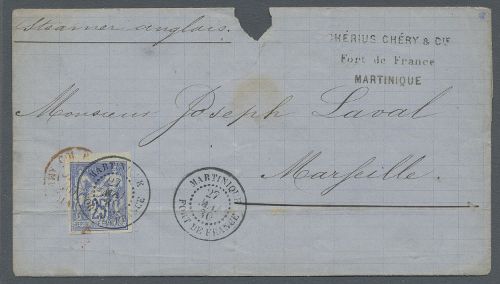 Steamer anglais.
CHÉRIUS CHÉRY & CIE
Fort de France
MARTINIQUE
Monsieur Joseph Laval
Marseille.
MARTINIQUE
25
MARTINIQUE
27
MAI
FORT DE FRANCE